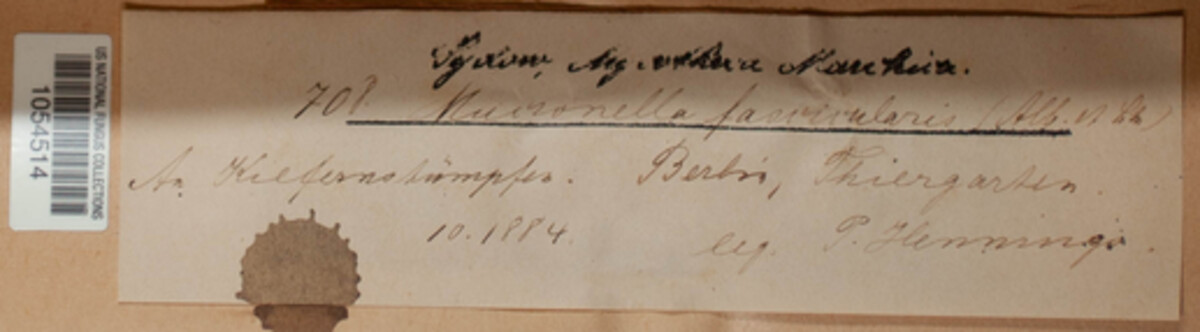 US NATIONAL FUNGUS COLLECTIONS
1054514
Sydow, Mycotheca Marchica.
708. Mucronella fascicularis (Alb. et Sch.)
An Kiefernstümpfen. Berlin, Thiergarten.
10.1884. leg. P. Hennings.